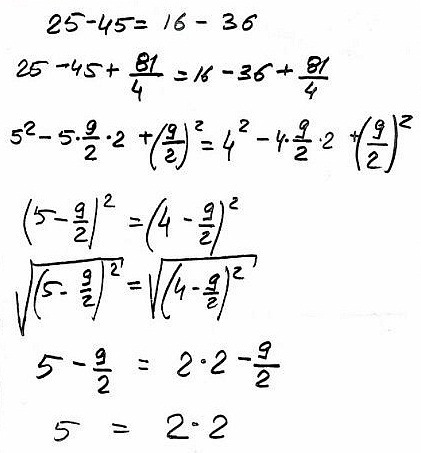 25 - 45 = 16 - 36
25 - 45 + 81/4 = 16 - 36 + 81/4
5² - 5·9/2·2 + (9/2)² = 4² - 4·9/2·2 + (9/2)²
(5 - 9/2)² = (4 - 9/2)²
√(5 - 9/2)² = √(4 - 9/2)²
5 - 9/2 = 2·2 - 9/2
5 = 2·2